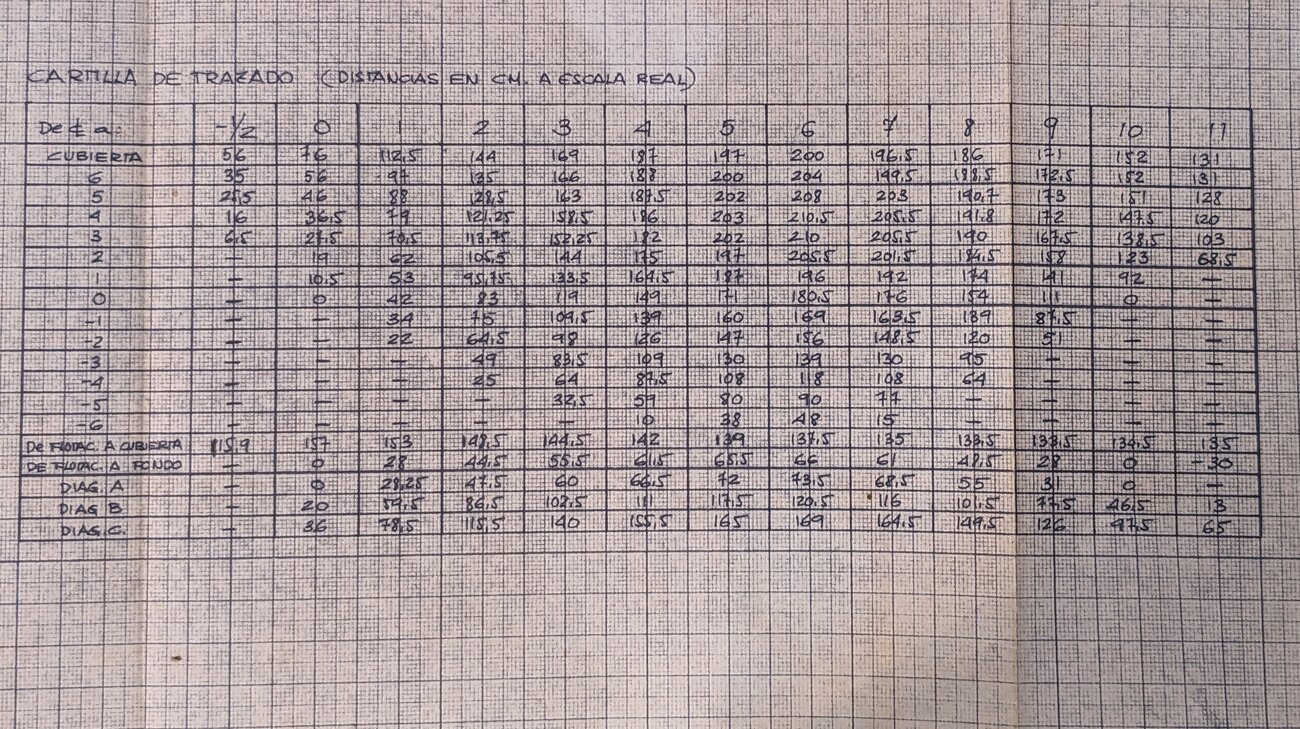 CARTILLA DE TRAZADO (DISTANCIAS EN CM. A ESCALA REAL)
De ℄ a: -1/2 0 1 2 3 4 5 6 7 8 9 10 11
CUBIERTA 56 76 112,5 144 169 187 197 200 196,5 186 171 152 131
6 35 56 97 135 166 188 200 204 199,5 188,5 172,5 152 131
5 25,5 46 88 128,5 163 187,5 202 208 203 190,7 173 151 128
4 16 36,5 79 121,25 158,5 186 203 210,5 205,5 191,8 172 147,5 120
3 6,5 27,5 70,5 113,75 152,25 182 202 210 205,5 190 167,5 138,5 103
2 — 19 62 105,5 144 175 197 205,5 201,5 184,5 158 123 68,5
1 — 10,5 53 95,75 133,5 164,5 187 196 192 174 141 92 —
0 — 0 42 83 119 149 171 180,5 176 154 111 0 —
-1 — — 34 75 109,5 139 160 169 163,5 139 87,5 — —
-2 — — 22 64,5 98 126 147 156 148,5 120 51 — —
-3 — — — 49 83,5 109 130 139 130 95 — — —
-4 — — — 25 64 87,5 108 118 108 64 — — —
-5 — — — — 32,5 59 80 90 77 — — — —
-6 — — — — — 10 38 48 15 — — — —
De FLOTAC. A CUBIERTA 115,9 157 153 148,5 144,5 142 139 137,5 135 133,5 133,5 134,5 135
DE FLOTAC. A FONDO — 0 28 44,5 55,5 61,5 65,5 66 61 48,5 28 0 -30
DIAG. A — 0 28,25 47,5 60 66,5 72 73,5 68,5 55 31 0 —
DIAG B — 20 59,5 86,5 102,5 111 117,5 120,5 116 101,5 77,5 46,5 13
DIAG. C. — 36 78,5 115,5 140 155,5 165 169 164,5 149,5 126 97,5 65